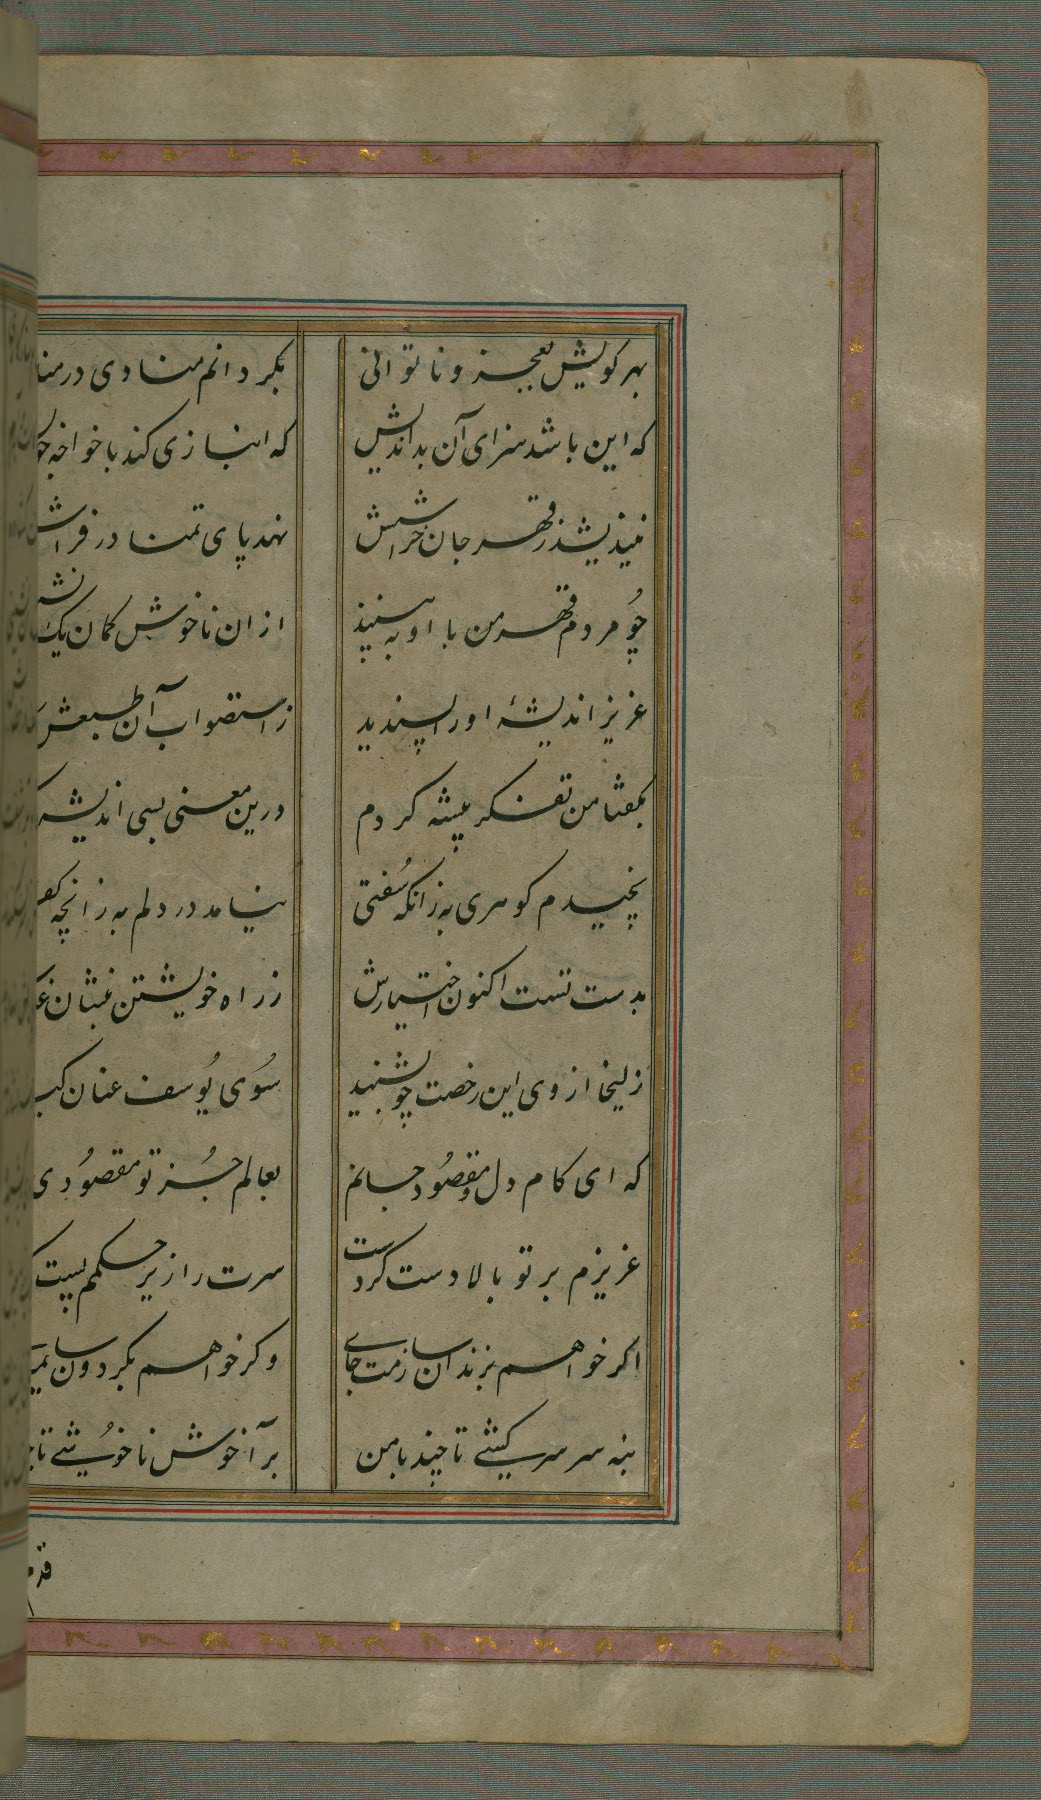 بهر کویش بعجز و ناتوانی بگردانم منادی در
که این باشد سزای آن بداندیش که انبازی کند با خواجه
نیندیشد ز قهر جان خراشش نهد پای تمنا در
چو مردم قهر من با او به بینند ازان ناخوش گمان یک
عزیز اندیشهٔ او را پسندید ز استصواب آن طبعش
بگفتا من تفکر پیشه کردم درین معنی بسی اندیشه
بچیدم گوهری به زانکه سفتی نیامد در دلم به زانچه
بدست تست اکنون اختیارش ز راه خویشتن بنشان
زلیخا از وی این رخصت چو بشنید سوی یوسف عنان
که ای کام دل و مقصود جانم بعالم جز تو مقصودی
عزیزم بر تو بالا دست کردست سرت را زیر حکمم پست
اگر خواهم بزندان سازمت جای وگر خواهم بگردون
بنه سر سرکشی تا چند با من برآ خوش ناخوشی تا